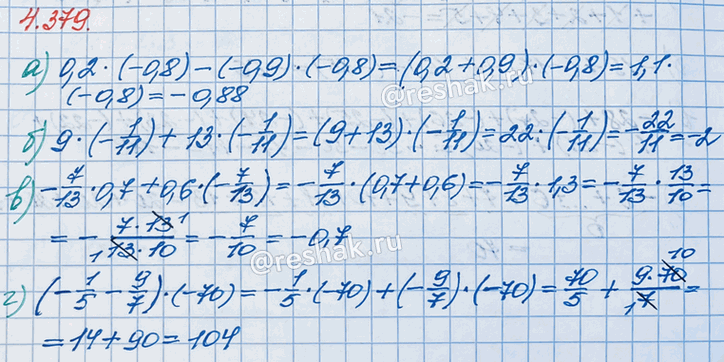 4.379.
а) 0,2 · (-0,8) - (-0,9) · (-0,8) = (0,2 + 0,9) · (-0,8) = 1,1 ·
(-0,8) = -0,88
@reshak.ru
б) 9 · (-1/11) + 13 · (-1/11) = (9 + 13) · (-1/11) = 22 · (-1/11) = -22/11 = -2
в) -7/13 · 0,7 + 0,6 · (-7/13) = -7/13 · (0,7 + 0,6) = -7/13 · 1,3 = -7/13 · 13/10 =
= - 7 · 13 1 / 1 13 · 10 = -7/10 = -0,7
@reshak.ru
г) (-1/5 - 9/7) · (-70) = -1/5 · (-70) + (-9/7) · (-70) = 70/5 + 9 · 70 10 / 1 7 =
= 14 + 90 = 104